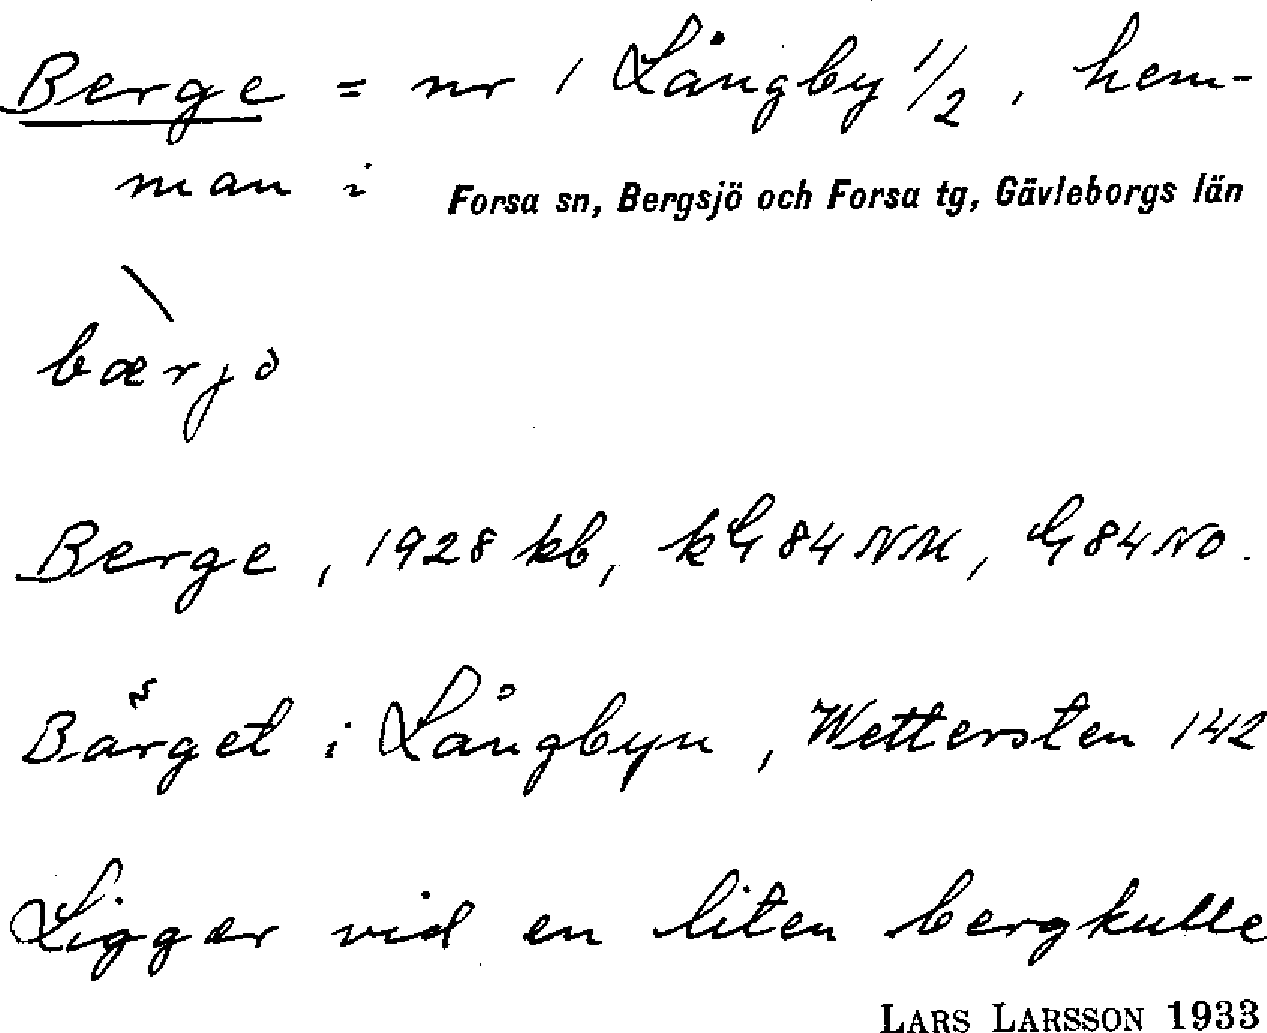 Berge = nr 1 Långby 1/2, hem-
man i Forsa sn, Bergsjö och Forsa tg, Gävleborgs län
bærjə
Berge, 1928 kb, kG 84 NM, G 84 NO.
Bärget i Långbyn, Wettersten 142
Ligger vid en liten bergkulle
LARS LARSSON 1933